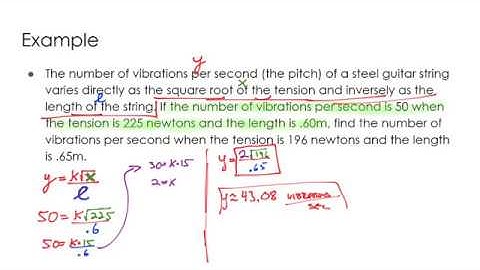 Example
y
● The number of vibrations per second (the pitch) of a steel guitar string
varies directly as the square root of the tension and inversely as the
x
l
length of the string. If the number of vibrations per second is 50 when
the tension is 225 newtons and the length is .60m, find the number of
vibrations per second when the tension is 196 newtons and the length
is .65m.
y = K√x / l
50 = K√225 / .6
50 = K·15 / .6
30 = K·15
2 = K
y = 2√196 / .65
y ≈ 43.08 vibrations / sec